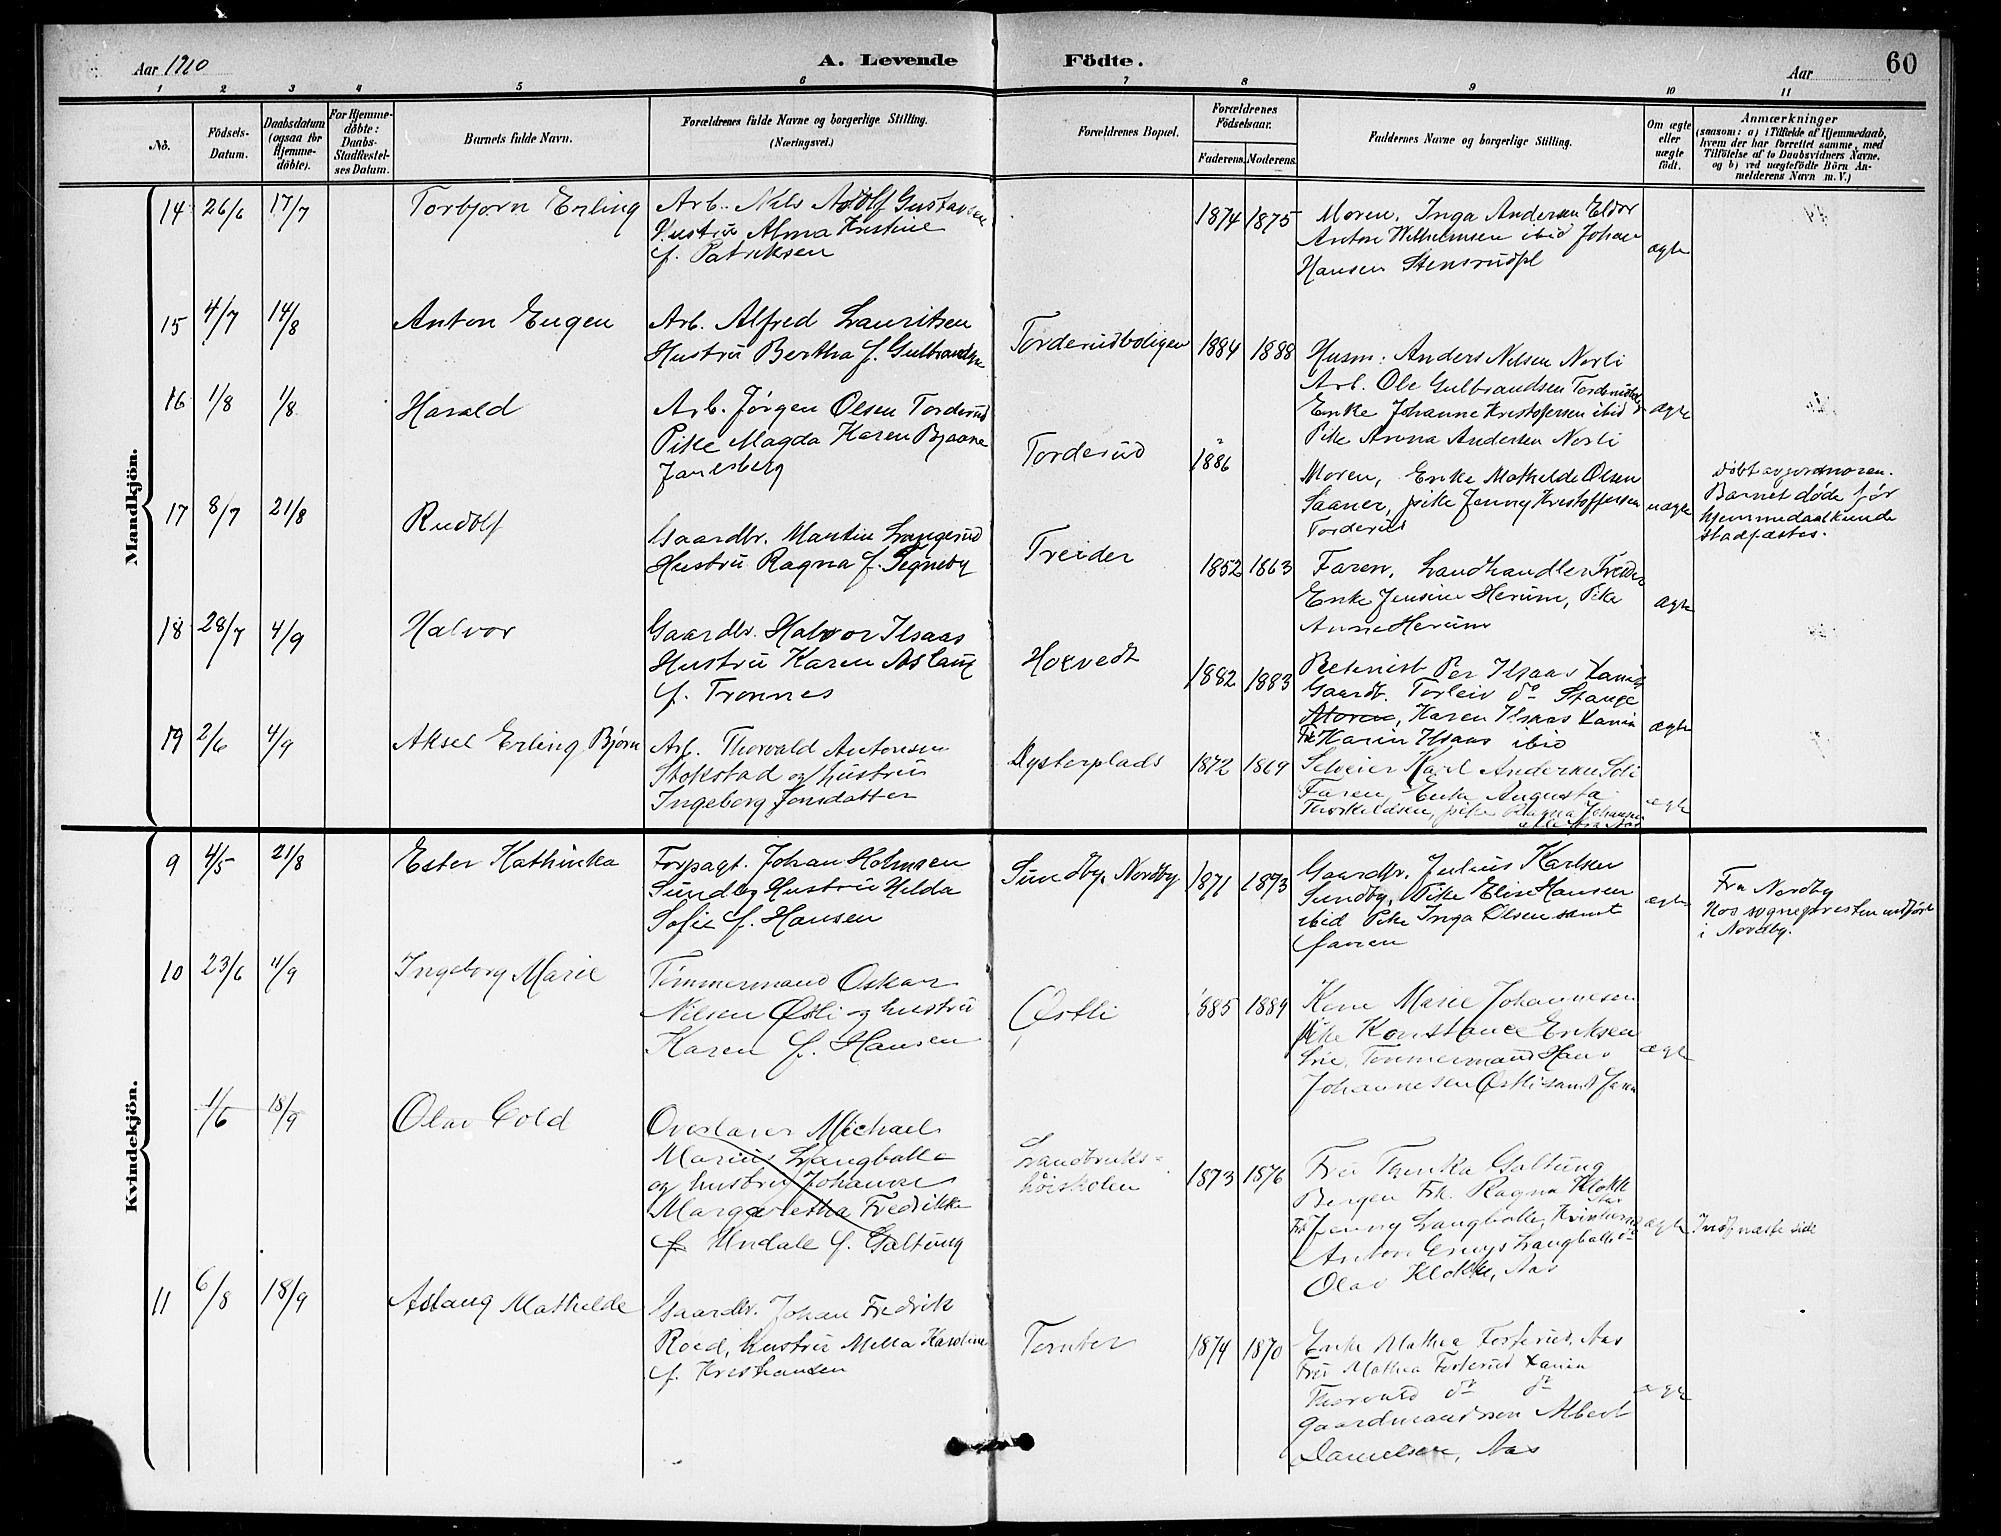 Aar 1910
A. Levende Födte.
Aar
60
1 2 3 4 5 6 7 8 9 10 11
No.
Födsels-Datum.
Daabsdatum (ogsaa for Hjemme-döbte).
For Hjemme-döbte: Daabs-Stadfæstel-ses Datum.
Barnets fulde Navn.
Forældrenes fulde Navne og borgerlige Stilling. (Næringsvei.)
Forældrenes Bopæl.
Forældrenes Födselsaar.
Faderens. Moderens.
Faddernes Navne og borgerlige Stilling.
Om ægte eller uægte födt.
Anmærkninger
(saasom: a) i Tilfælde af Hjemmedaab, hvem der har forrettet samme, med Tilföielse af to Daabsvidners Navne, og b) ved uægtefödte Börn An-melderens Navn m. V.)
Mandkjön.
14 26/6 17/7 Torbjørn Erling
Arb. Nils Adolf Gustavsen
Hustru Alma Kristine
f. Patriksen
1874 1875
Moren, Inga Andersen Eldor
Anton Wilhelmsen ibid Johan
Hansen Stensrudpl
ægte
15 4/7 14/8 Anton Eugen
Arb. Alfred Lauritsen
Hustru Bertha f. Gulbrandsen
Torderudboligen 1884 1888
Husm: Anders Nilsen Norli
Arb. Ole Gulbrandsen
Enke Johanne Kristoffersen ibid
Pike Anna Andersen Norli
ægte
16 1/8 1/8 Harald
Arb. Jørgen Olsen Torderud
Pike Magda Karen Bjaane
Torderud 1886
Moren, Enke Mathilde Olsen
Saaner, pike Jenny Kristoffersen
Torderud
uægte
døbt av jordmoren.
Barnet døde før
hjemmedaab kunde
stadfæstes.
17 8/7 21/8 Rudolf
Gaardbr. Martin Langerud
Hustru Ragna f. Tegneby
Treider 1852 1863
Faren, Landhandler Treider
Enke Jensine Herum, Pike
Anne Herum
ægte
18 28/7 4/9 Halvor
Gaardbr. Halvor Ilsaas
Hustru Karen Aslaug
f. Tronnes
Hoxvedt 1882 1883
Per Ilsaas
Gaardb. Torleiv do Stange
Moren, Karen Ilsaas
Frk Karin Ilsaas ibid
ægte
19 2/6 4/9 Aksel Erling Bjørn
Arb. Thorvald Antonsen
Stokstad og hustru
Ingeborg Jonsdatter
Dysterplads 1872 1869
Selveier Karl Andersen Soli
Faren, Enke Augusta
Thorkildsen, pike Ragna Johansen
alle fra Aas
ægte
Kvindekjön.
9 4/5 21/8 Ester Kathinka
Forpagt. Johan Holmsen
Sundby Hustru Hilda
Sofie f. Hansen
Sundby, Nordby 1871 1873
Gaardbr. Julius Karlsen
Sundby, Pike Elise Hansen
ibid Pike Inga Olsen samt
faren
ægte
Fra Nordby
Hos sognepresten indført
i Nordby.
10 23/6 4/9 Ingeborg Marie
Tømmermand Oskar
Nilsen Østli og hustru
Karen f. Hansen
Østli 1885 1889
Kone Marie Johannesen
Pike Konstance Eriksen
Tømmermand Hans
Johannesen Østli samt faren
ægte
1/6 18/9 Olav Cold
Overlærer Michael
Marius Langballe
og hustru Johanne
Margaretha Fredrikke
f. Undale f. Galtung
Landbruks-
høiskolen
1873 1876
Fru Thinka Galtung
Bergen Frk. Ragna Klokk
Aas
Frk Jenny Langballe,
Anton Langballe do
Olav Klokke, Aas
ægte
Indf næste side
11 6/8 18/9 Aslaug Mathilde
Gaardbr. Johan Fredrik
Roed, hustru Milla Karoline
f. Kristiansen
Tomter 1874 1870
Enke Mathea Forferud, Aas
Fru Mathea Forferud
Thorvald do do
gaardmandssøn Albert
Danielsen, Aas
ægte